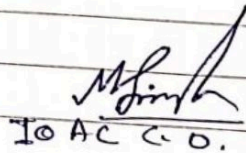 MSingh
IO AC C.O.